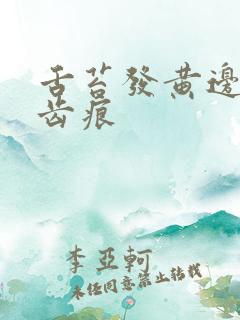 舌苔發黄邊
齿痕
李亞軻
未经同意禁止转载